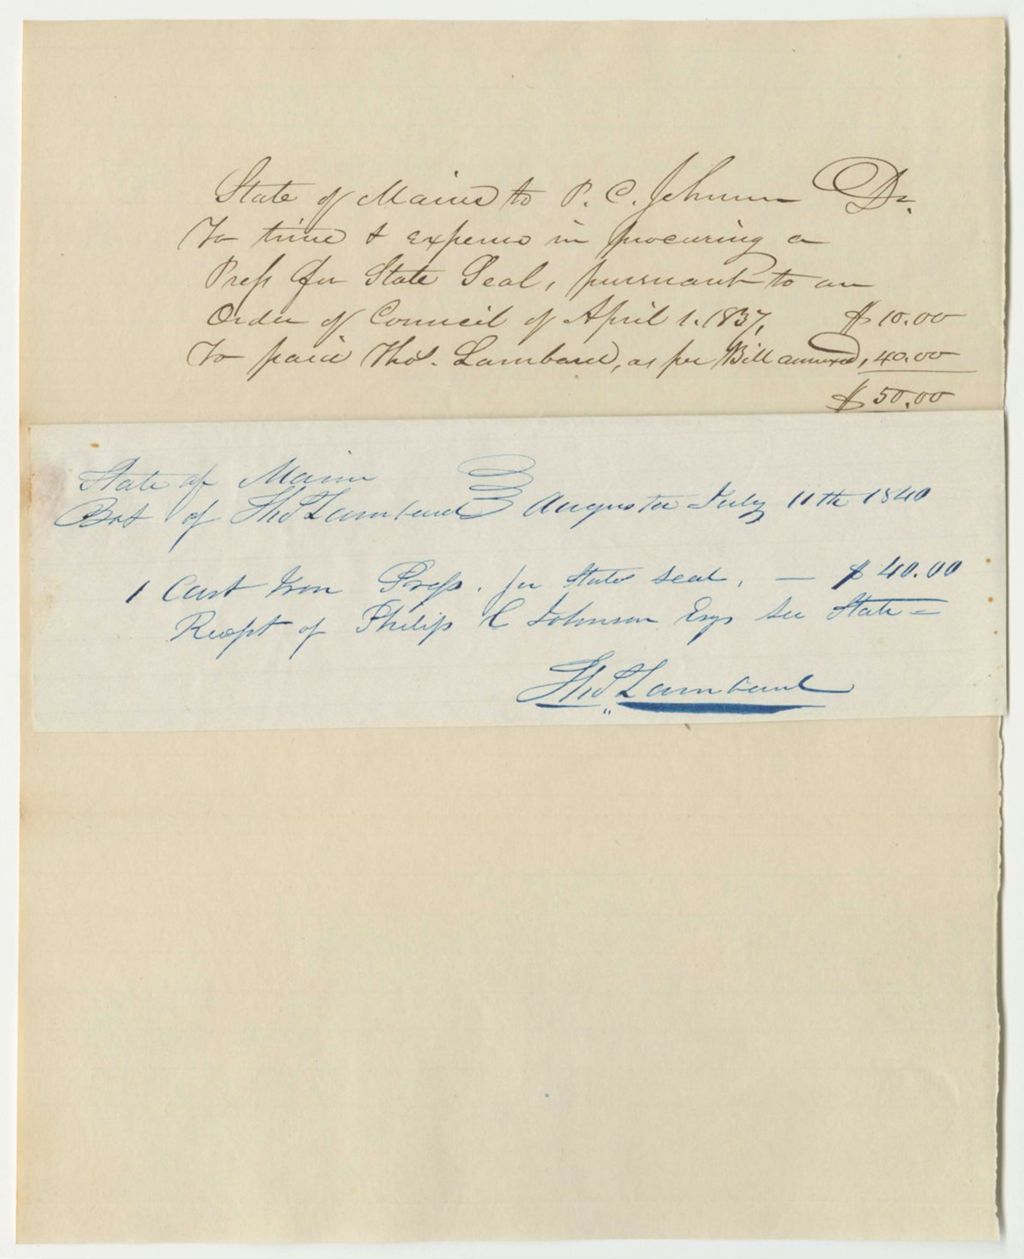 State of Maine to P. C. Johnson Dr.
To time & expense in procuring a
Press for State Seal, pursuant to an
Order of Council of April 1. 1837, $10.00
To paid Thos. Lambard, as per Bill annexed, 40.00
$50.00
State of Maine
Bot of Thos Lambard Augusta July 11th 1840
1 Cast Iron Press. for State seal. — $40.00
Recept of Philip C Johnson Esqr Sec State =
Thos Lambard